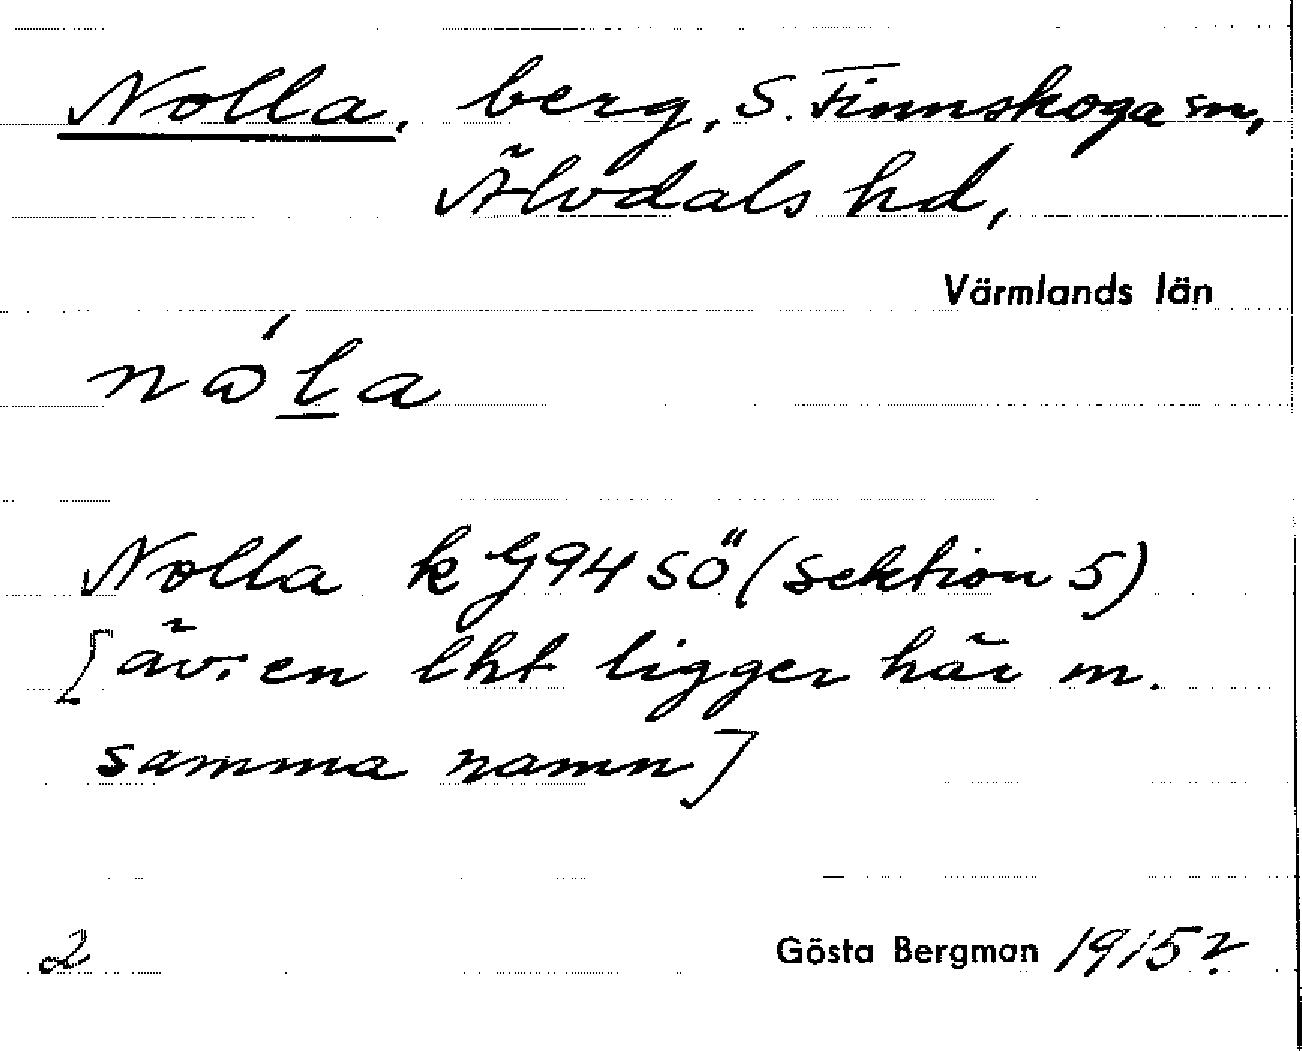 Nolla, berg, S. Finnskoga sn,
Älvdals hd,
Värmlands län
nω´l̲a
Nolla k G94 sö (sektion 5)
[äv. en lht ligger här m.
samma namn]
2 Gösta Bergman 1915?